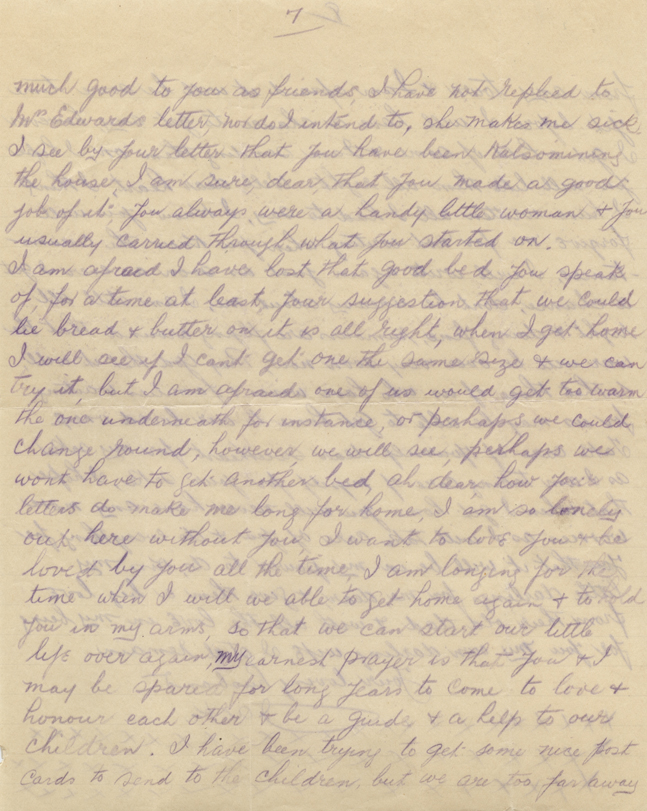 7
much good to you as friends, I have not replied to
Mrs Edwards letter, nor do I intend to, she makes me sick,
I see by your letter that you have been Kalsomining
the house, I am sure, dear that you made a good
job of it, you always were a handy little woman & you
usually carried through what you started on.
I am afraid I have lost that good bed you speak
of, for a time at least, your suggestion that we could
lie bread & butter on it is all right, when I get home
I will see if I cant get one the same size & we can
try it, but I am afraid one of us would get too warm
the one underneath for instance, or perhaps we could
change round, however, we will see, perhaps we
wont have to get another bed, ah dear how your
letters do make me long for home, I am so lonely
out here without you, I want to love you & be
loved by you all the time, I am longing for the
time when I will we able to get home again & to hold
you in my arms, so that we can start our little
life over again, my earnest prayer is that you & I
may be spared for long years to come to love &
honour each other & be a guide & a help to our
children. I have been trying to get some nice post
cards to send to the children, but we are too far away